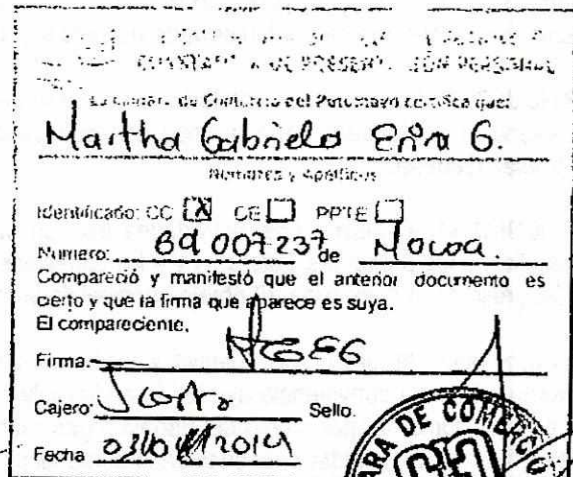 CONSTANCIA DE PRESENTACIÓN PERSONAL
La Cámara de Comercio del Putumayo certifica que:
Martha Gabriela Erira G.
Nombres y Apellidos
Identificado: CC [X] CE [ ] PPTE [ ]
Numero: 69 007237 de Mocoa.
Compareció y manifestó que el anterior documento es
cierto y que la firma que aparece es suya.
El compareciente,
Firma.
Cajero: Sello.
Fecha 2014
CAMARA DE COMERCIO